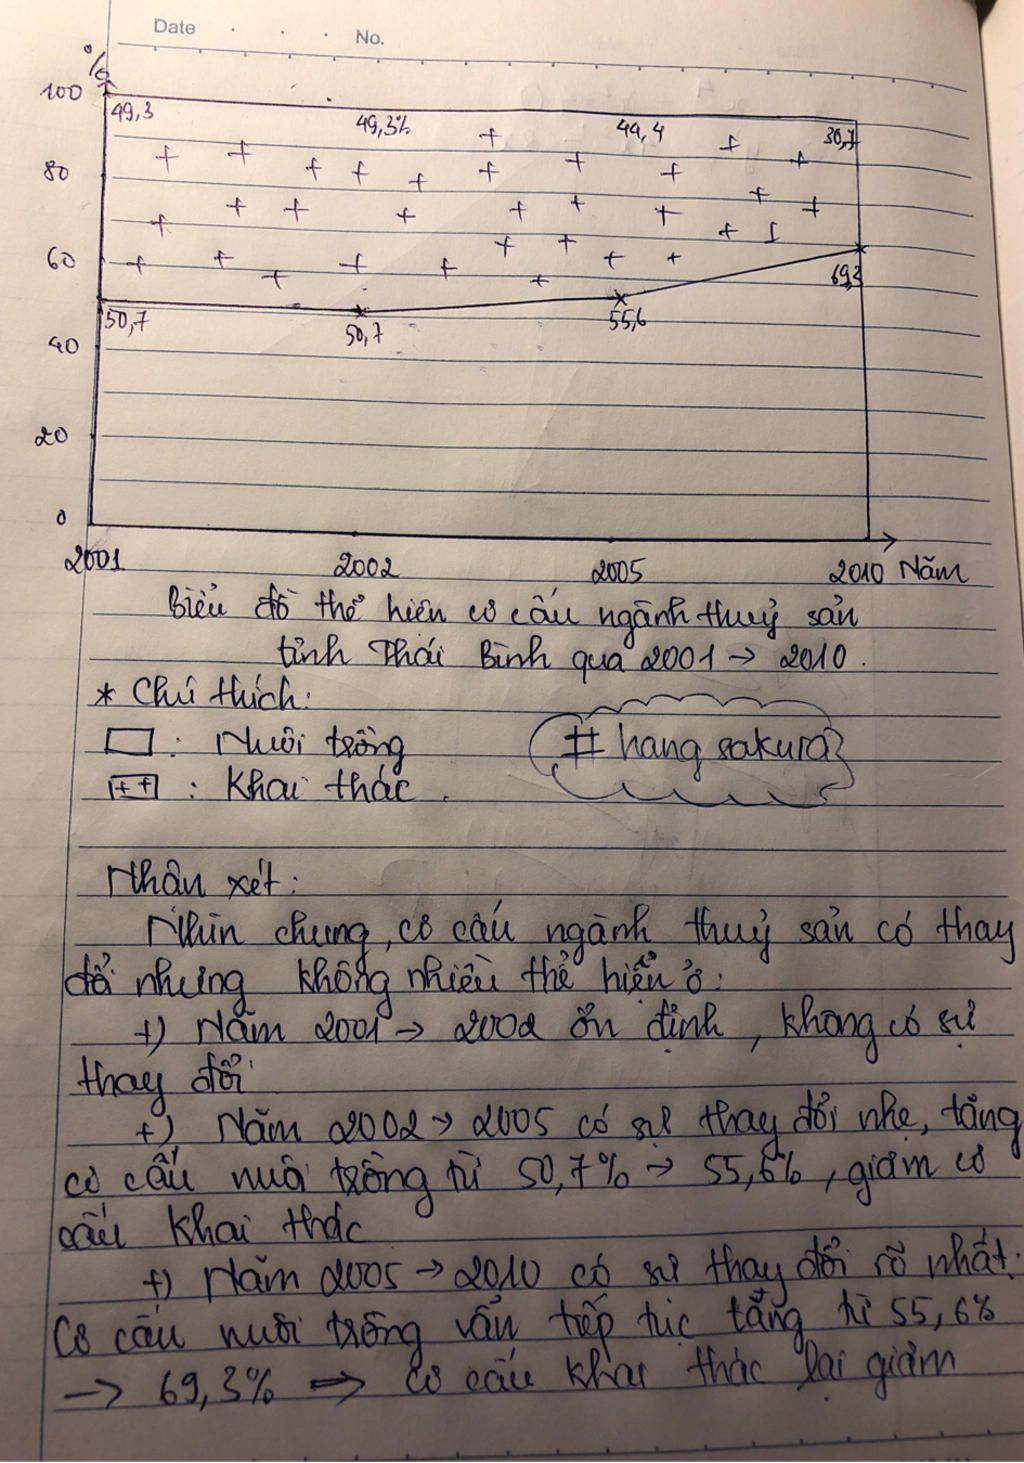 Date . . . No.
%
100
49,3 49,3% 44,4 30,7
80
60
69,3
50,7 50,7 55,6
40
20
0
2001 2002 2005 2010 Năm
Biểu đồ thể hiện cơ cấu ngành thuỷ sản
tỉnh Thái Bình qua 2001 → 2010.
* Chú thích:
: Nuôi trồng
# hang sakura
++ : Khai thác.
Nhận xét:
Nhìn chung, cơ cấu ngành thuỷ sản có thay
đổi nhưng không nhiều thể hiện ở:
+) Năm 2001 → 2002 ổn định, không có sự
thay đổi
+) Năm 2002 → 2005 có sự thay đổi nhẹ, tăng
cơ cấu nuôi trồng từ 50,7% → 55,6%, giảm cơ
cấu khai thác
+) Năm 2005 → 2010 có sự thay đổi rõ nhất.
Cơ cấu nuôi trồng vẫn tiếp tục tăng từ 55,6%
→ 69,3% => cơ cấu khai thác lại giảm